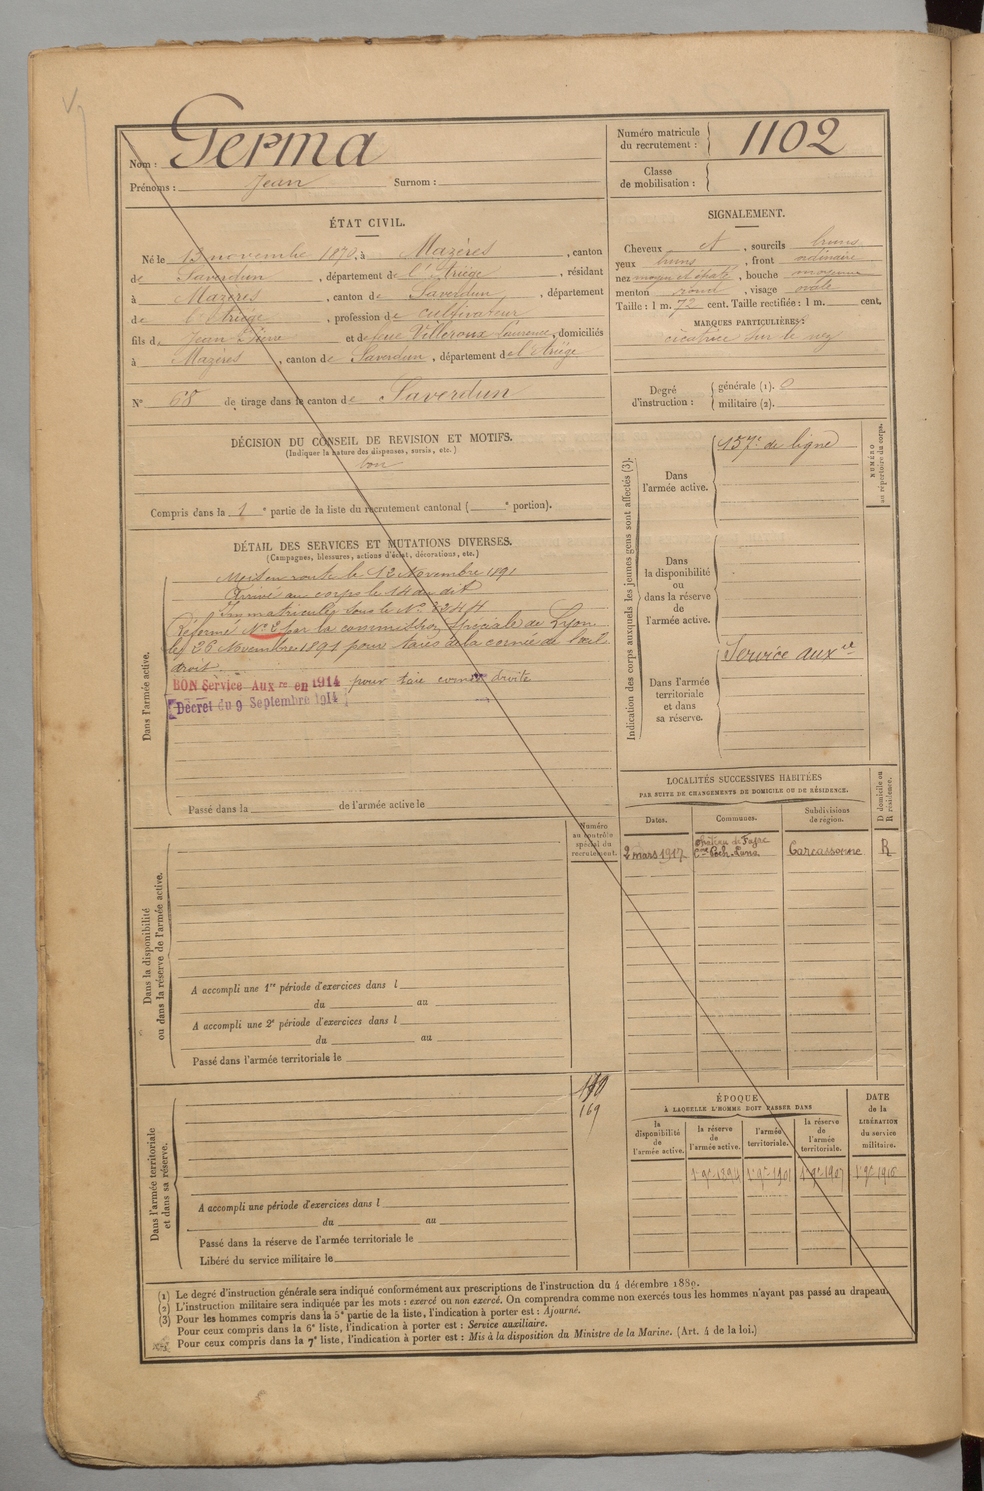 Nom : Germa
Prénoms : Jean Surnom :
Numéro matricule du recrutement : 1102
Classe de mobilisation :
ÉTAT CIVIL.
Né le 13 novembre 1870, à Mazères, canton
de Saverdun, département de l'Ariège, résidant
à Mazères, canton de Saverdun, département
de l'Ariège, profession de cultivateur
fils de Jean Pierre et de feue Villeroux Laurence, domiciliés
à Mazères, canton de Saverdun, département de l'Ariège
N° 68 de tirage dans le canton de Saverdun
SIGNALEMENT.
Cheveux et, sourcils bruns
yeux bruns, front ordinaire
nez moyen et épaté, bouche moyenne
menton rond, visage ovale
Taille : 1 m. 72 cent. Taille rectifiée : 1 m. cent.
MARQUES PARTICULIÈRES :
cicatrice sur le nez
Degré d'instruction : générale (1). 0
militaire (2).
DÉCISION DU CONSEIL DE REVISION ET MOTIFS.
(Indiquer la nature des dispenses, sursis, etc.)
bon
Compris dans la 1e partie de la liste du recrutement cantonal ( e portion).
DÉTAIL DES SERVICES ET MUTATIONS DIVERSES.
(Campagnes, blessures, actions d'éclat, décorations, etc.)
Dans l'armée active.
Mis en route le 12 Novembre 1891
Arrivé au corps le 14 du dit
Immatriculé sous le N°
Réformé N° 2 par la commission spéciale de Lyon
le 26 Novembre 1891 pour taies de la cornée de l'œil
droit.
BON Service Aux re en 1914 pour taie cornée droite
Décret du 9 Septembre 1914
Passé dans la de l'armée active le
Indication des corps auxquels les jeunes gens sont affectés (3).
NUMÉRO au répertoire du corps.
Dans l'armée active.
157e de ligne
Dans la disponibilité ou dans la réserve de l'armée active.
Dans l'armée territoriale et dans sa réserve.
Service auxre
LOCALITÉS SUCCESSIVES HABITÉES
PAR SUITE DE CHANGEMENTS DE DOMICILE OU DE RÉSIDENCE.
Dates. Communes. Subdivisions de région. D domicile ou R résidence.
2 mars 1917 Château de Fajac Cne Pech-Luna Carcassonne R
Numéro au contrôle spécial du recrutement.
Dans la disponibilité ou dans la réserve de l'armée active.
A accompli une 1re période d'exercices dans l
du au
A accompli une 2e période d'exercices dans l
du au
Passé dans l'armée territoriale le
169
Dans l'armée territoriale et dans sa réserve.
A accompli une période d'exercices dans l
du au
Passé dans la réserve de l'armée territoriale le
Libéré du service militaire le
ÉPOQUE
À LAQUELLE L'HOMME DOIT PASSER DANS
la disponibilité de l'armée active. la réserve de l'armée active. l'armée territoriale. la réserve de l'armée territoriale. DATE de la LIBÉRATION du service militaire.
1er 9bre 1894 1er 9bre 1901 1er 9bre 1907 1er 9bre 1916
(1) Le degré d'instruction générale sera indiqué conformément aux prescriptions de l'instruction du 4 décembre 1889.
(2) L'instruction militaire sera indiquée par les mots : exercé ou non exercé. On comprendra comme non exercés tous les hommes n'ayant pas passé au drapeau.
(3) Pour les hommes compris dans la 5e partie de la liste, l'indication à porter est : Ajourné.
Pour ceux compris dans la 6e liste, l'indication à porter est : Service auxiliaire.
Pour ceux compris dans la 7e liste, l'indication à porter est : Mis à la disposition du Ministre de la Marine. (Art. 4 de la loi.)